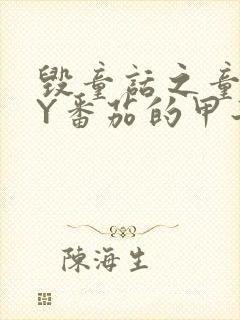 毀童話之童
Y番茄的甲
陳海生